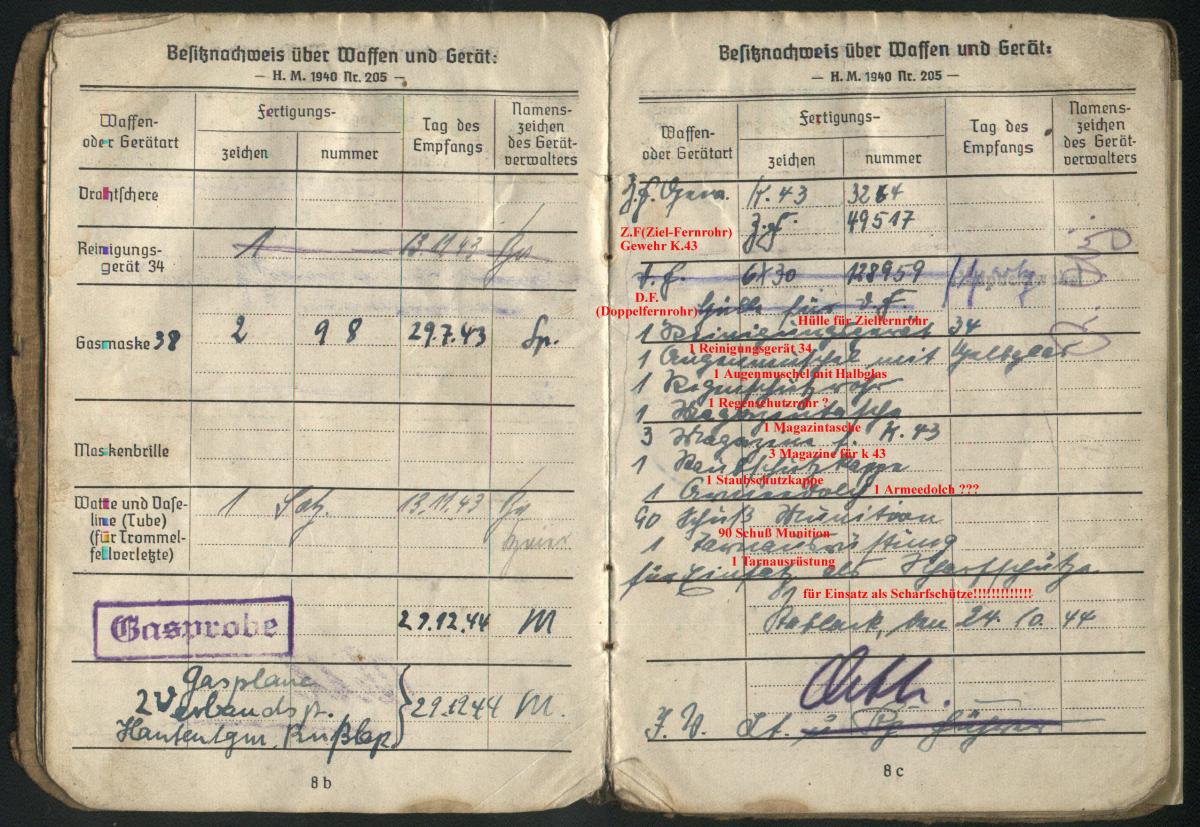 Besitznachweis über Waffen und Gerät:
— H. M. 1940 Nr. 205 —
Waffen- oder Gerätart
Fertigungs-
zeichen
nummer
Tag des Empfangs
Namens-zeichen des Gerät-verwalters
Drahtschere
Reinigungs-gerät 34 1 13.11.43
Gasmaske 38 2 98 29.7.43 Sp.
Maskenbrille
Watte und Vase-line (Tube) (für Trommel-fellverletzte) 1 Satz 13.11.43
Gasprobe 29.12.44 M
Gasplane
2 Verbandsp. 29.12.44 M.
Hautentgm.
8 b
Besitznachweis über Waffen und Gerät:
— H. M. 1940 Nr. 205 —
Waffen- oder Gerätart
Fertigungs-
zeichen
nummer
Tag des Empfangs
Namens-zeichen des Gerät-verwalters
Z.F. K.43 3264
Z.F. 49517
Z.F(Ziel-Fernrohr)
Gewehr K.43
D.F. 6x30 128959
D.F.
(Doppelfernrohr)
Hülle für D.F
Hülle für Zielfernrohr
1 Reinigungsgerät 34
1 Reinigungsgerät 34
1 Augenmuschel mit
1 Augenmuschel mit Halbglas
1 Regenschutzrohr
1 Regenschutzrohr ?
1 Magazintasche
1 Magazintasche
3 Magazine f. K. 43
3 Magazine für k 43
1
1 Staubschutzkappe
1
1 Armeedolch ???
90 Schuß Munition
90 Schuß Munition
1 Tarnausrüstung
1 Tarnausrüstung
für Einsatz als Scharfschütze
für Einsatz als Scharfschütze!!!!!!!!!!!!!
Stablack, den 24. 10. 44
Lt. u.
8 c